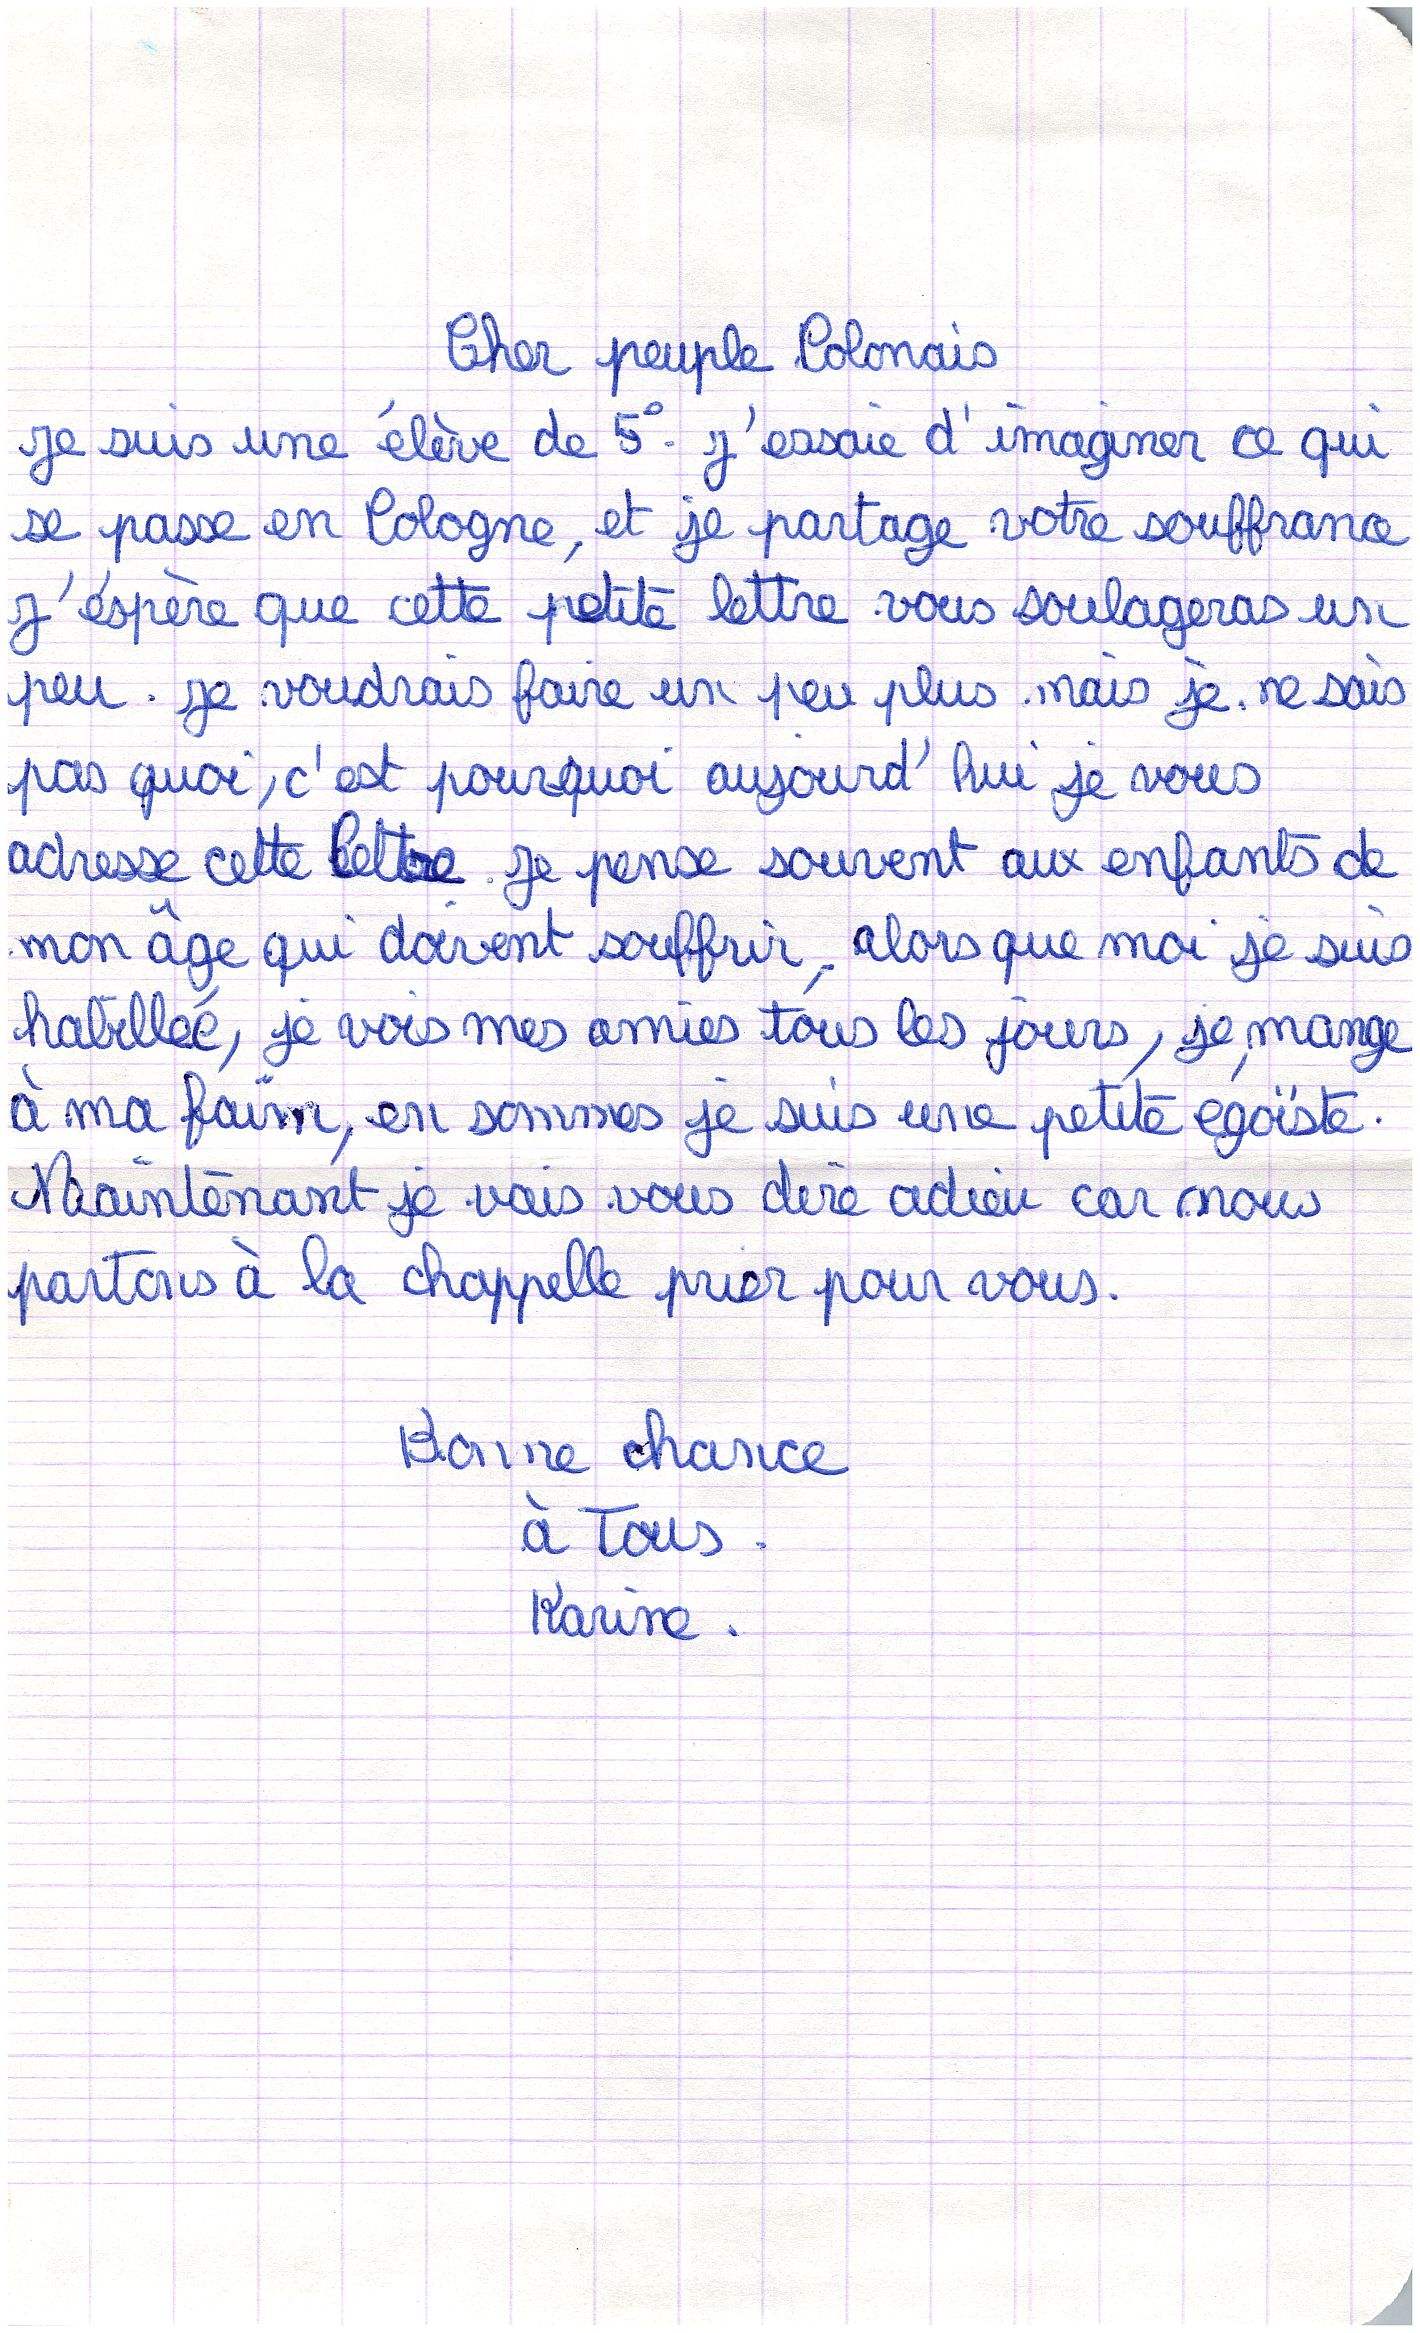 Cher peuple Polonais
je suis une élève de 5°. j'essaie d'imaginer ce qui
se passe en Pologne, et je partage votre souffrance
j'éspère que cette petite lettre vous soulageras un
peu. je voudrais faire un peu plus mais je ne sais
pas quoi, c'est pourquoi aujourd'hui je vous
adresse cette lettre. je pense souvent aux enfants de
mon âge qui doivent souffrir, alors que moi je suis
habillée, je vois mes amies tous les jours, je mange
à ma faim, en sommes je suis une petite égoïste.
Maintenant je vais vous dire adieu car nous
partons à la chappelle prier pour vous.
Bonne chance
à Tous.
Karine.